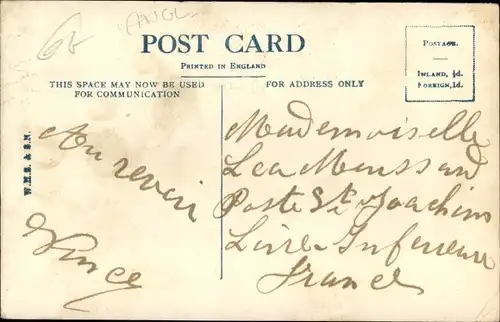 6f ANGL
POST CARD
PRINTED IN ENGLAND
THIS SPACE MAY NOW BE USED
FOR COMMUNICATION
FOR ADDRESS ONLY
POSTAGE.
INLAND, ½d.
FOREIGN, 1d.
W.H.S. & S.N.
Au revoir
Mademoiselle
Lea Moussard
Poste St Joachim
Loire-Inferieure
France